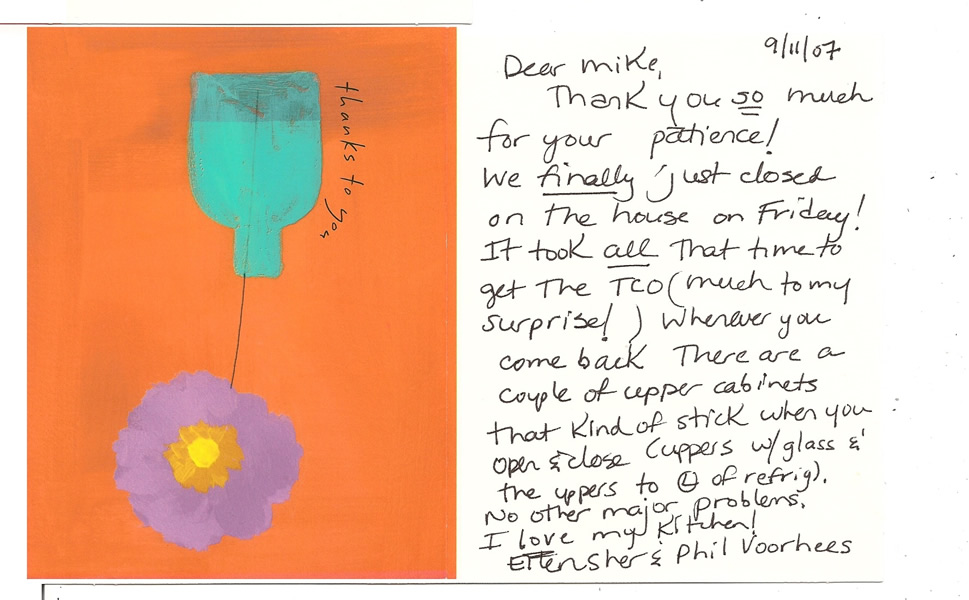 thanks to you
9/11/07
Dear Mike,
Thank you so much
for your patience!
We finally just closed
on the house on Friday!
It took all that time to
get the TCO (much to my
surprise!) Whenever you
come back there are a
couple of upper cabinets
that kind of stick when you
open & close (uppers w/glass &
the uppers to L of refrig).
No other major problems.
I love my kitchen!
& Phil Voorhees